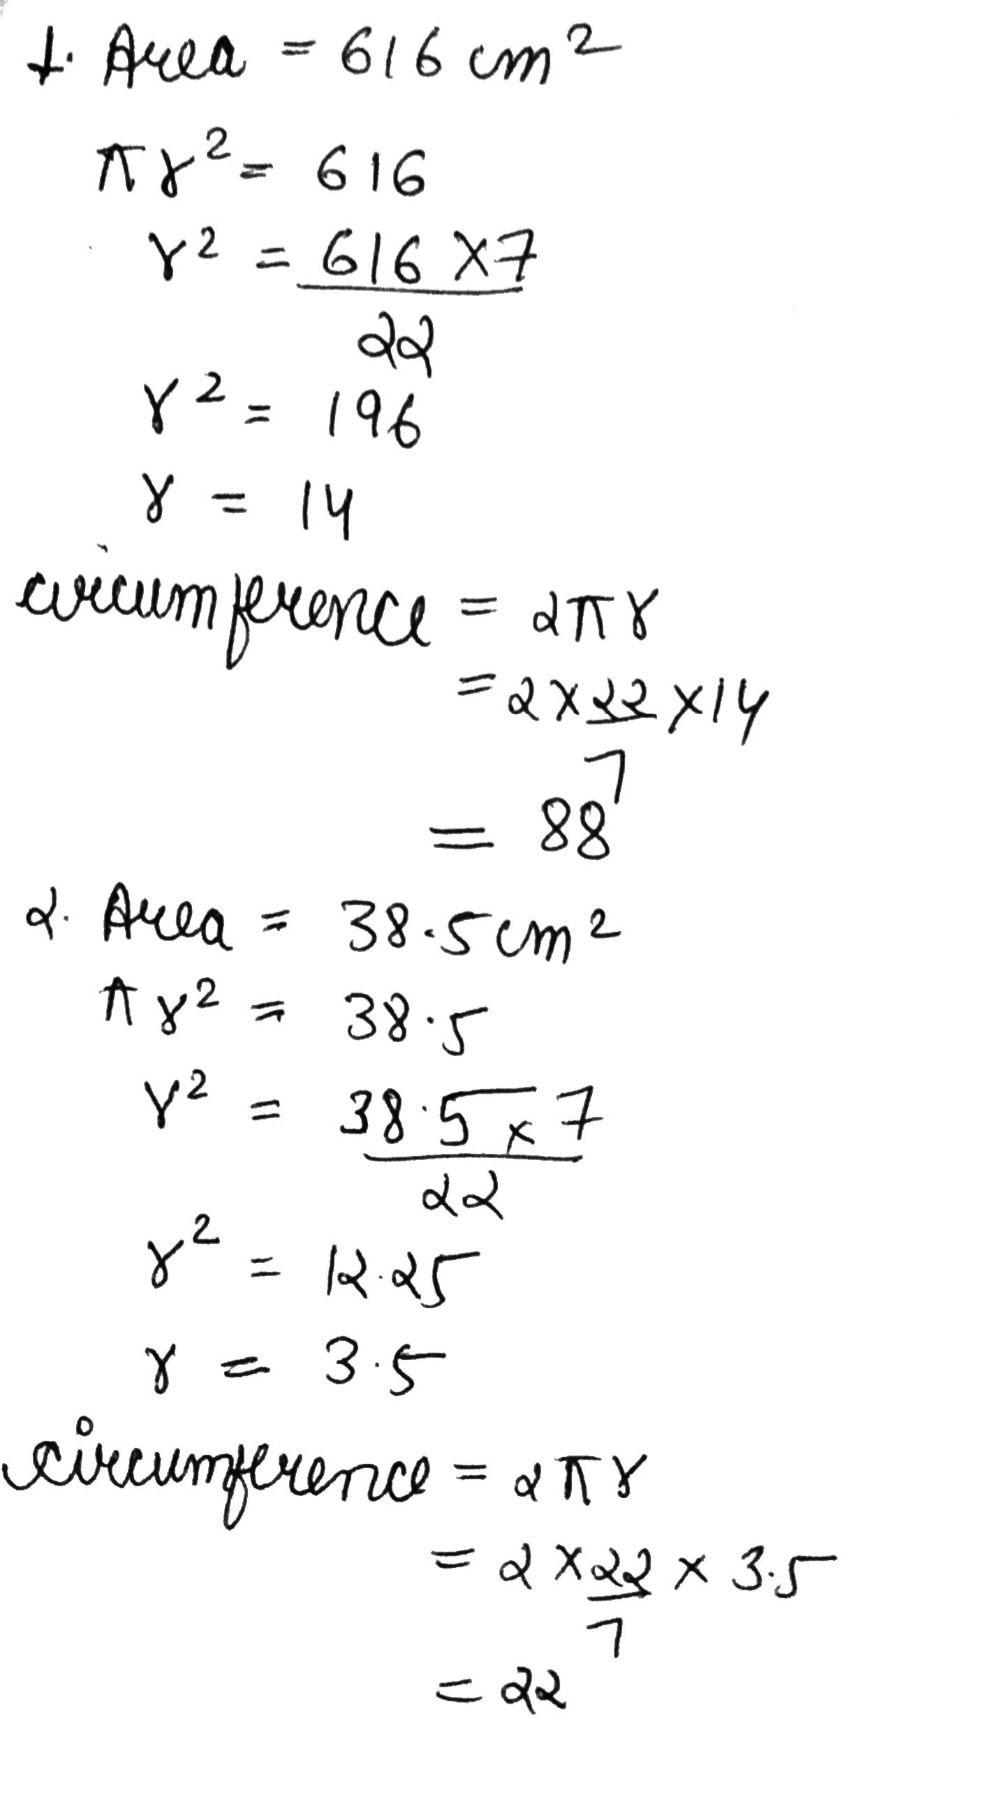 1. Area = 616 cm²
πr² = 616
r² = 616 × 7
22
r² = 196
r = 14
circumference = 2πr
= 2 × 22 × 14
7
= 88
2. Area = 38.5 cm²
πr² = 38.5
r² = 38.5 × 7
22
r² = 12.25
r = 3.5
circumference = 2πr
= 2 × 22 × 3.5
7
= 22